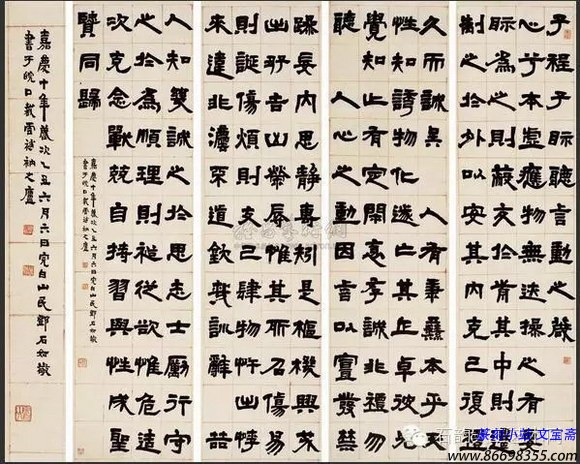 子程子眎聽言動之箴
心兮本虛應物無迹操之有要
眎為之則蔽交於前其中則遷
制之於外以安其內克己復禮
久而誠矣　人有秉彝本乎天
性知誘物化遂亡其正卓彼先
覺知止有定閑邪存誠非禮勿
聽　人心之動因言以宣發禁
躁妄內斯靜專矧是樞機興戎
出好吉凶榮辱惟其所召傷易
則誕傷煩則支己肆物忤出悖
來違非灋不道欽哉訓辭　哲
人知幾誠之於思志士勵行守
之於為順理則裕從欲惟危造
次克念戰兢自持習與性成聖
賢同歸
嘉慶十年歲次乙丑六月六日完白山民鄧石如敬
書于皖口戴雪補衲之廬
嘉慶十年歲次乙丑六月六日完白山民鄧石如敬
書于皖口戴雪補衲之廬
篆刻小站 文宝斋
www.86698355.com